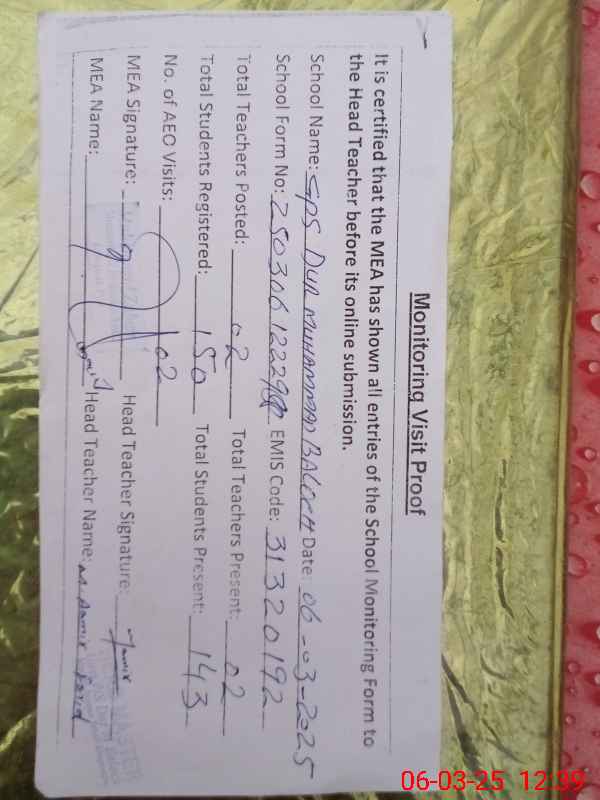 Monitoring Visit Proof
It is certified that the MEA has shown all entries of the School Monitoring Form to
the Head Teacher before its online submission.
School Name: GPS DUR MUHAMMAD BALOCH Date: 06-03-2025
School Form No: 2503061222 EMIS Code: 31320192
Total Teachers Posted: 02 Total Teachers Present: 02
Total Students Registered: 150 Total Students Present: 143
No. of AEO Visits: 02
MEA Signature: Head Teacher Signature: Aamir
MEA Name: Head Teacher Name: M. Aamir
06-03-25 12:39